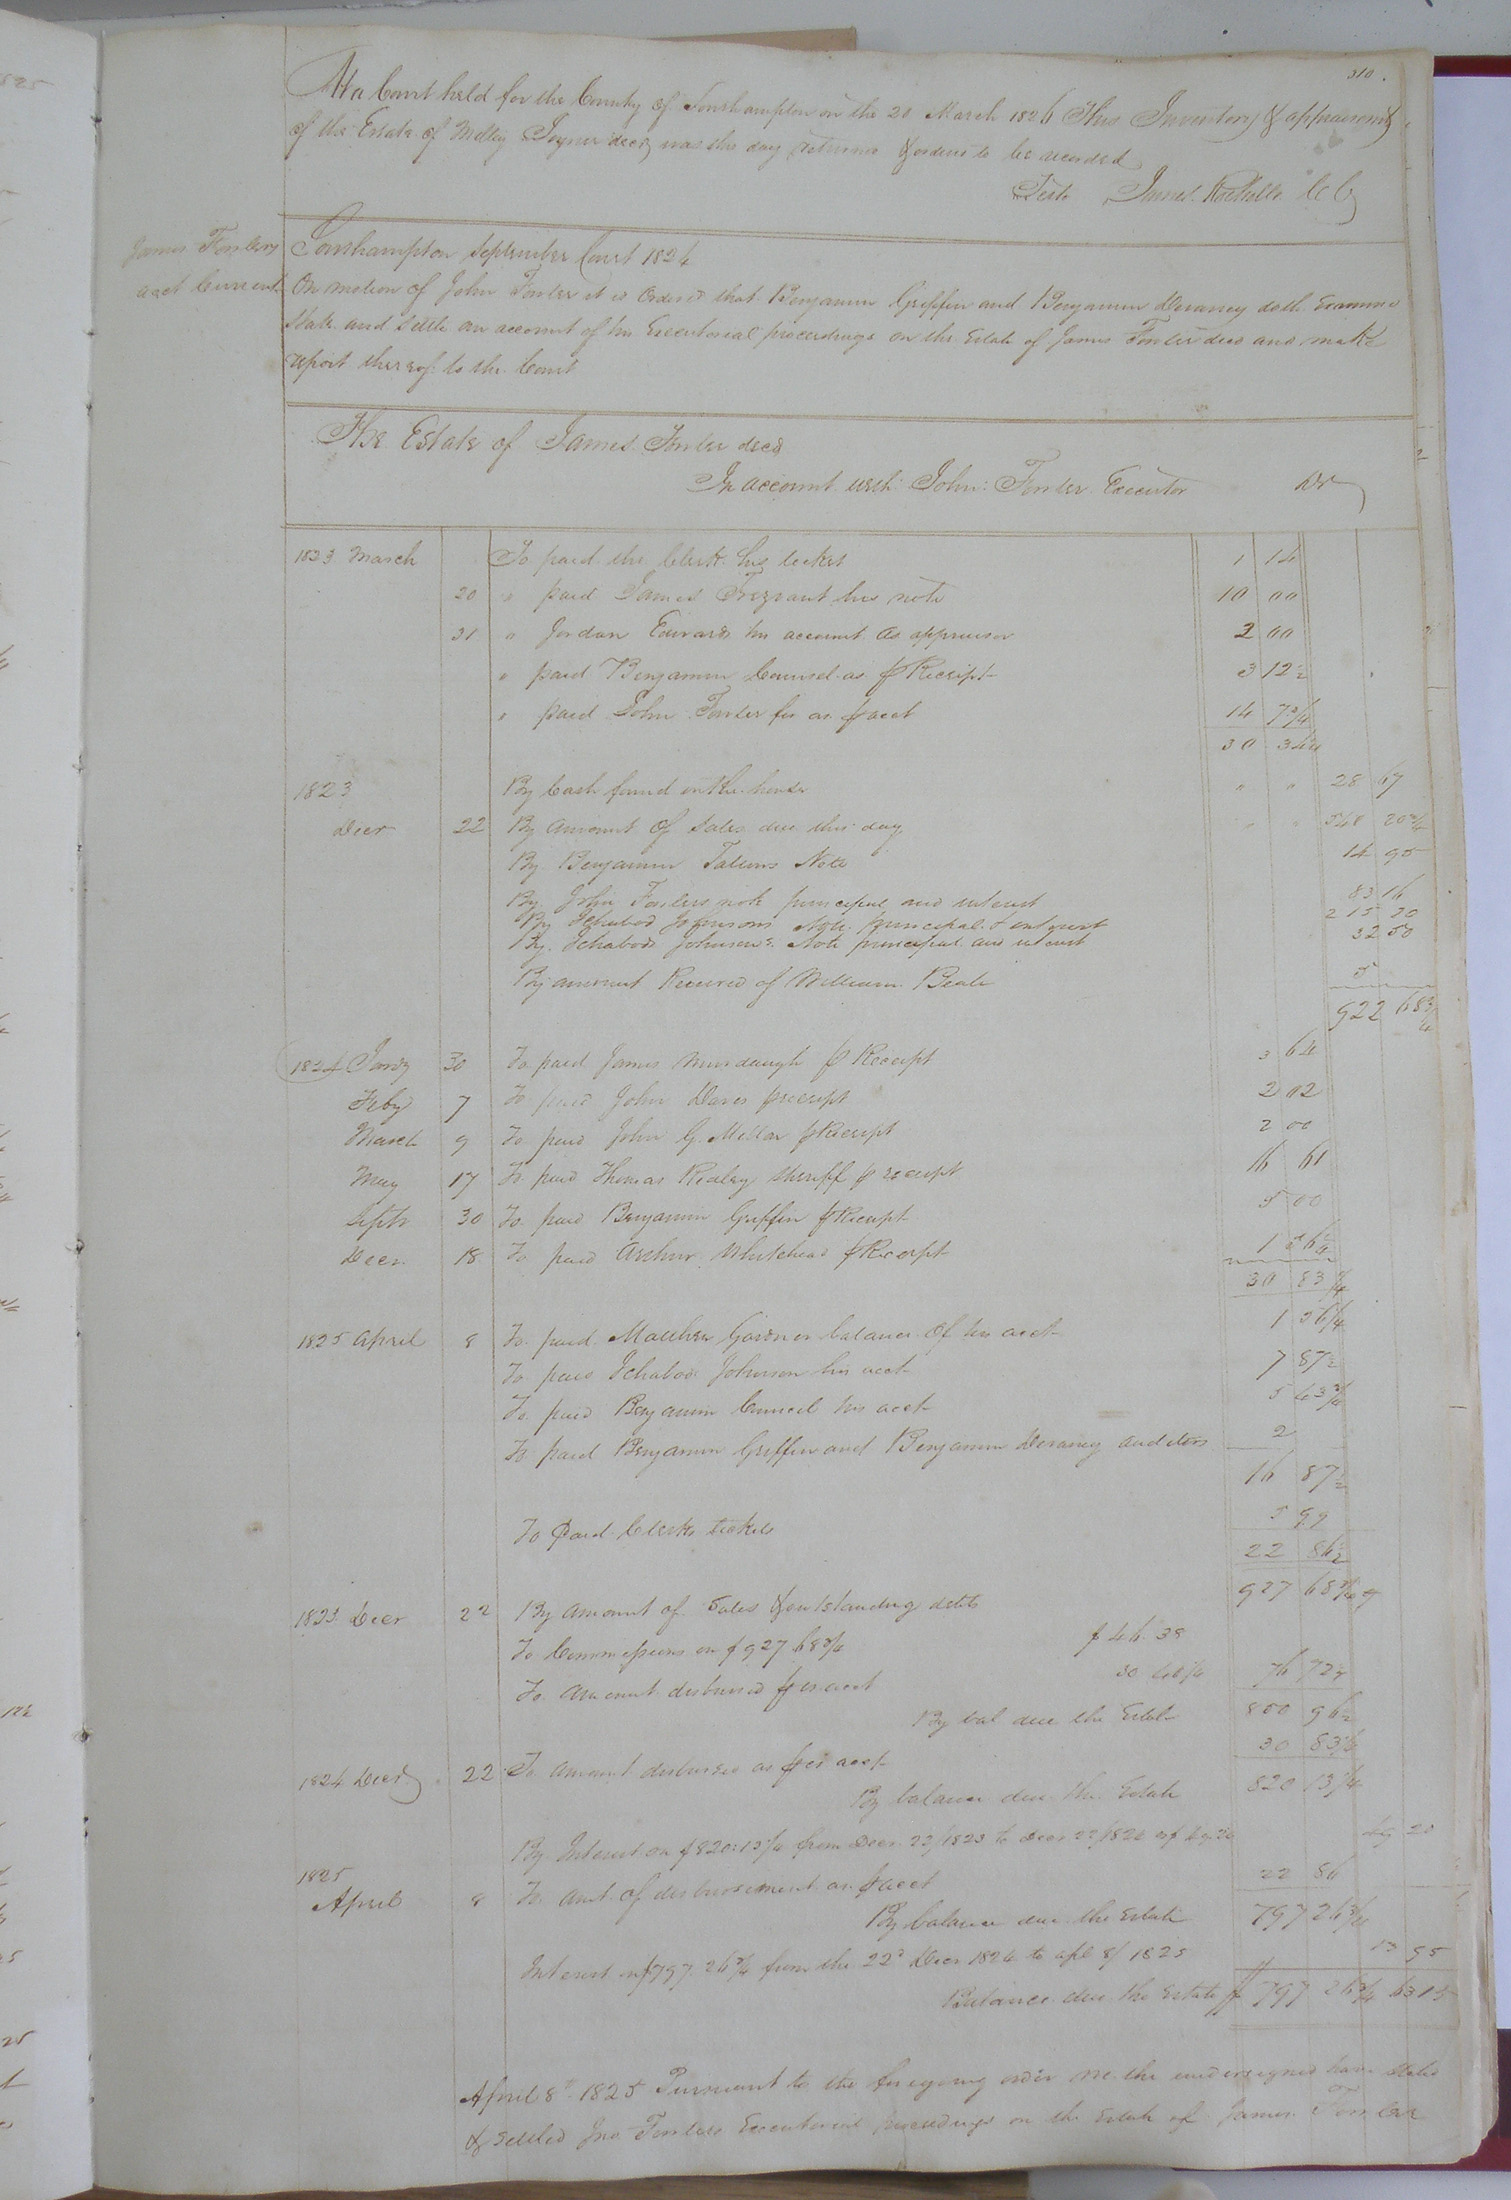 310.
At a Court held for the County of Southampton on the 20 March 1826 This Inventory & appraisement
of the Estate of Milley Joyner decd was this day returned & orderd to be recorded
Teste James Rochelle C C
James Fowlers
acct Current
Southampton September Court 1824
On motion of John Fowler it is Ordered that Benjamin Griffin and Benjamin Devaney doth Examine
State and Settle an account of his Executorial proceedings on the Estate of James Fowler decd and make
report thereof to the Court
The Estate of James Fowler decd
In account with John Fowler Executor Dr
1823 March To paid the Clerk his ticket 1 14
20 " paid James Trezvant his note 10 00
31 " Jordan Edwards his account as appraiser 2 00
" paid Benjamin Councel as p Receipt 3 12½
" paid John Fowler for as p acct 14 7¾
30 34¼
1823 By Cash found in the house " " 28 67
Decr 22 By amount of Sales due this day " " 548 20¾
By Benjamin Note 14 95
By John Fowlers note principal and interest 83 16
By Ichabod Johnsons Note principal & interest 215 20
By Ichabods Johnsons Note principal and interest 32 50
By amount Received of William Beale 5
922 68¾
1824 Jany 30 To paid James Murdaugh p Receipt 3 64
Feby 7 To paid John Davis p receipt 2 02
March 9 To paid John G. Millar p Receipt 2 00
May 17 To paid Thomas Ridley Sheriff p receipt 16 61
Septr 30 To paid Benjamin Griffin p Receipt 5 00
Decr. 18 To paid Arthur Whitehead p Receipt 1 56¼
30 83¼
1825 April 8 To paid Matthew Gardner balance of his acct 1 56¼
To paid Ichabod Johnson his acct 7 87½
To paid Benjamin Council his acct 5 43¾
To paid Benjamin Griffin and Benjamin Devaney auditors 2
16 87½
To paid Clerks tickets 5 99
22 86½
1823 Decr 22 By amount of Sales & outstanding debts 927 68¾
To Commissions on $927 68¾ $46.38
To amount disbursed p er acct 30 34¼ 76 72¼
By bal due the Estate 850 96½
1824 Decr 22 To amount disbursed as per acct 30 83¼
By balance due the Estate 820 13¼
By Interest on $820:13¼ from Decr. 22/1823 to Decr 22/1824 49 20
1825
April 8 To amt of disbursement as p acct 22 86
By balance due the Estate 797 26¾
Interest on $797.26¾ from the 22d Decr 1824 to apl 8/1825 13 95
Balance due the Estate $ 797 26¾ 63 15
April 8th 1825 Pursuant to the foregoing order we the undersigned have Stated
& Settled Jno Fowlers Executorial proceedings on the Estate of James Fowler